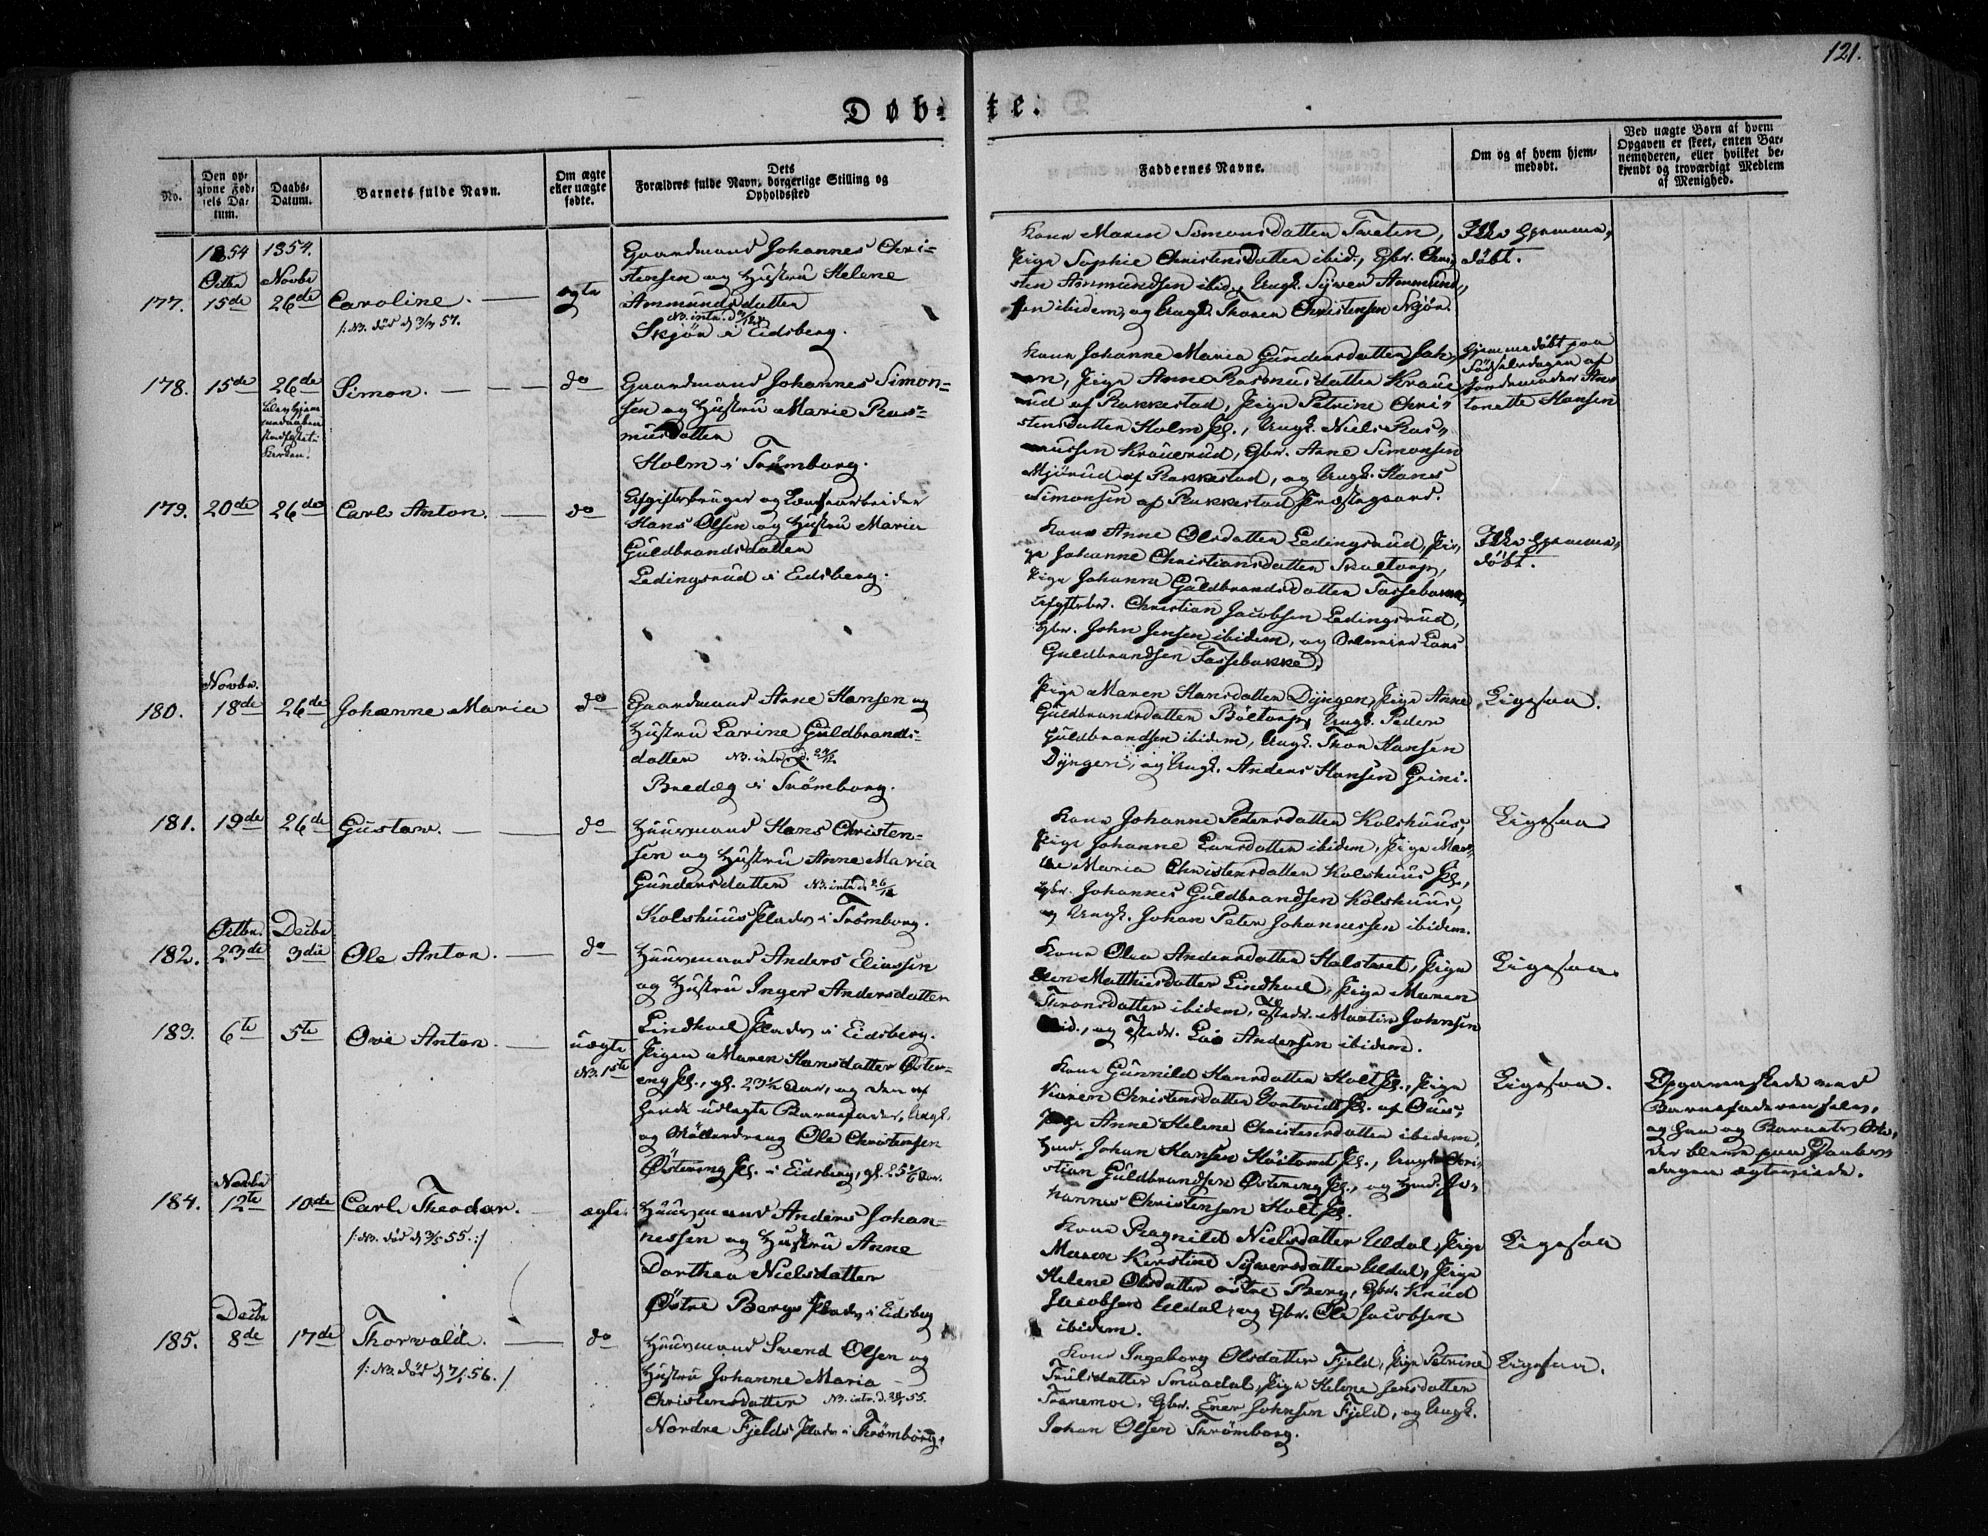 121.
Døbte.
No.
Den op-
givne Fød-
sels Da-
tum.
Daabs-
Datum.
Barnets fulde Navn.
Om ægte
eller uægte
fødte.
Dets
Forældres fulde Navn, borgerlige Stilling og
Opholdssted
Faddernes Navne.
Om og af hvem hjem-
medøbt.
Ved uægte Børn af hvem
Opgaven er skeet, enten Bar-
nemoderen, eller hvilket be-
kjendt og troværdigt Medlem
af Menighed.
1854 1854.
Octbr Novbr
177. 15de 26de Caroline. ægte
/: NB. død d 3/4 57.
Gaardmand Johannes Chri-
stensen og Hustru Helene
Ammundsdatter
NB. intr. d
Skjør i Eidsberg.
Kone Maren Simonsdatter Tveten,
Pige Sophie Christensdatter ibid., Gbr. Chri-
sten Ammundsen ibid., Ungk. Syver Ammund-
sen ibidem, og Ungk. Thoren Christensen Skjør.
Ikke hjemme-
døbt.
178. 15de 26de Simon. do
Gaardmand Johannes Simon-
sen og Hustru Marie Ras-
musdatter
Holm i Trømborg.
Kone Johanne Maria Gundersdatter
Pige Anne Rasmusdatter Kraue-
rud af Rakkestad, Pige Petrine Chri-
stensdatter Holm Pl., Ungk. Niels Ras-
mussen Krauerud, Gbr. Arne Simonsen
Mjørud af Rakkestad, og Ungk. Hans
Simonsen af Rakkestad Præstegaard.
Hjemmedøbt paa
Fødselsdagen af
Jordemoder An-
tonette Hansen
179. 20de 26de Carl Anton. do
Afgiftsbruger og
Hans Olsen og Hustru Maria
Guldbrandsdatter
Ledingsrud i Eidsberg.
Kone Anne Olsdatter Ledingsrud, Pi-
ge Johanne Christiansdatter
Pige Johanne Guldbrandsdatter Tassebakke,
Afgiftsbr. Christian Jacobsen Ledingsrud,
Gbr. John Jensen ibidem, og Lars
Guldbrandsen Tassebakke.
Ikke hjemme-
døbt.
Novbr.
180. 18de 26de Johanne Maria do
Gaardmand Arne Hansen og
Hustru Larine Guldbrands-
datter NB. intr. d.
Bredæg i Trømborg.
Pige Maren Hansdatter Dyngen, Pige Anne
Guldbrandsdatter Böltorp, Ungk. Peder
Guldbrandsen ibidem, Ungk. Thor Hansen
Dyngen, og Ungk. Anders Hansen Grini.
Ligesaa.
181. 19de 26de Gustav. do
Huusmand Hans Christen-
sen og Hustru Anne Maria
Gundersdatter NB. intr. d. 26/12
Kolshuus Pladds i Trømborg.
Kone Johanne Pedersdatter Kolshuus,
Pige Johanne Larsdatter ibidem, Pige
Maria Christensdatter Kolshuus Pl.,
Gbr. Johannes Guldbrandsen Kolshuus,
og Ungk. Johan Peter Johannessen ibidem.
Ligesaa
Octbr. Decbr
182. 23de 3die Ole Anton. do
Huusmand Anders Eliassen
og Hustru Inger Andersdatter
Lindhol Plads i Eidsberg.
Kone Olea Andersdatter Holstvet, Pige
Matthiesdatter Lindhol, Pige Maren
Thronsdatter ibidem, Martin Johnsen
ibid., og Andersen ibidem.
Ligesaa.
183. 6te 5te Ove Anton. uægte
NB. 1ste
Pigen Maren Hansdatter Øster-
eng Pl., gl. 23½ Aar, og den af
hende udlagte Barnefader, Ungk.
og Møllerdreng Ole Christensen
Østereng Pl. i Eidsberg, gl. Aar.
Kone Gunnild Hansdatter Holt Pl., Pige
Karen Christensdatter Pl. af Ous,
Pige Anne Helene Christensdatter ibidem,
Hmd. Johan Hansen Pl., Ungk. Chri-
stian Guldbrandsen Østereng Pl., og Hmd. Jo-
hannes Christensen Holt Pl.
Ligesaa.
Opgaven skede ved
Barnefaderen selv,
og han og Barnets Mo-
der bleve paa Daabs-
dagen ægteviede.
Novbr
184. 12te 10de Carl Theodor. ægte.
/: NB. død d 3/5 55. :/
Huusmand Anders Johan-
nessen og Hustru Anne
Dorthea Nielsdatter
Østre Bergs Plads i Eidsberg
Kone Ragnild Nielsdatter Uldal, Pige
Maren Kerstine Syversdatter Uldal, Pige
Helene Olsdatter østre Berg, Gbr. Knud
Jacobsen Uldal, og Gbr. Ole Jacobsen
ibidem.
Ligesaa
Decbr
185. 8de 17de Thorvald. do
/: NB. død d 7/1 56. :/
Huusmand Svend Olsen og
Hustru Johanne Maria
Christensdatter NB. intr. d. 55.
Nordre Fjelds Plads i Trømborg.
Kone Ingeborg Olsdatter Fjeld, Pige Petrine
Trulsdatter Smaadal, Pige Helene Jensdatter
Tranemoe, Gbr. Ener Johnsen Fjeld, og Ungk.
Johan Olsen Trømborg.
Ligesaa.